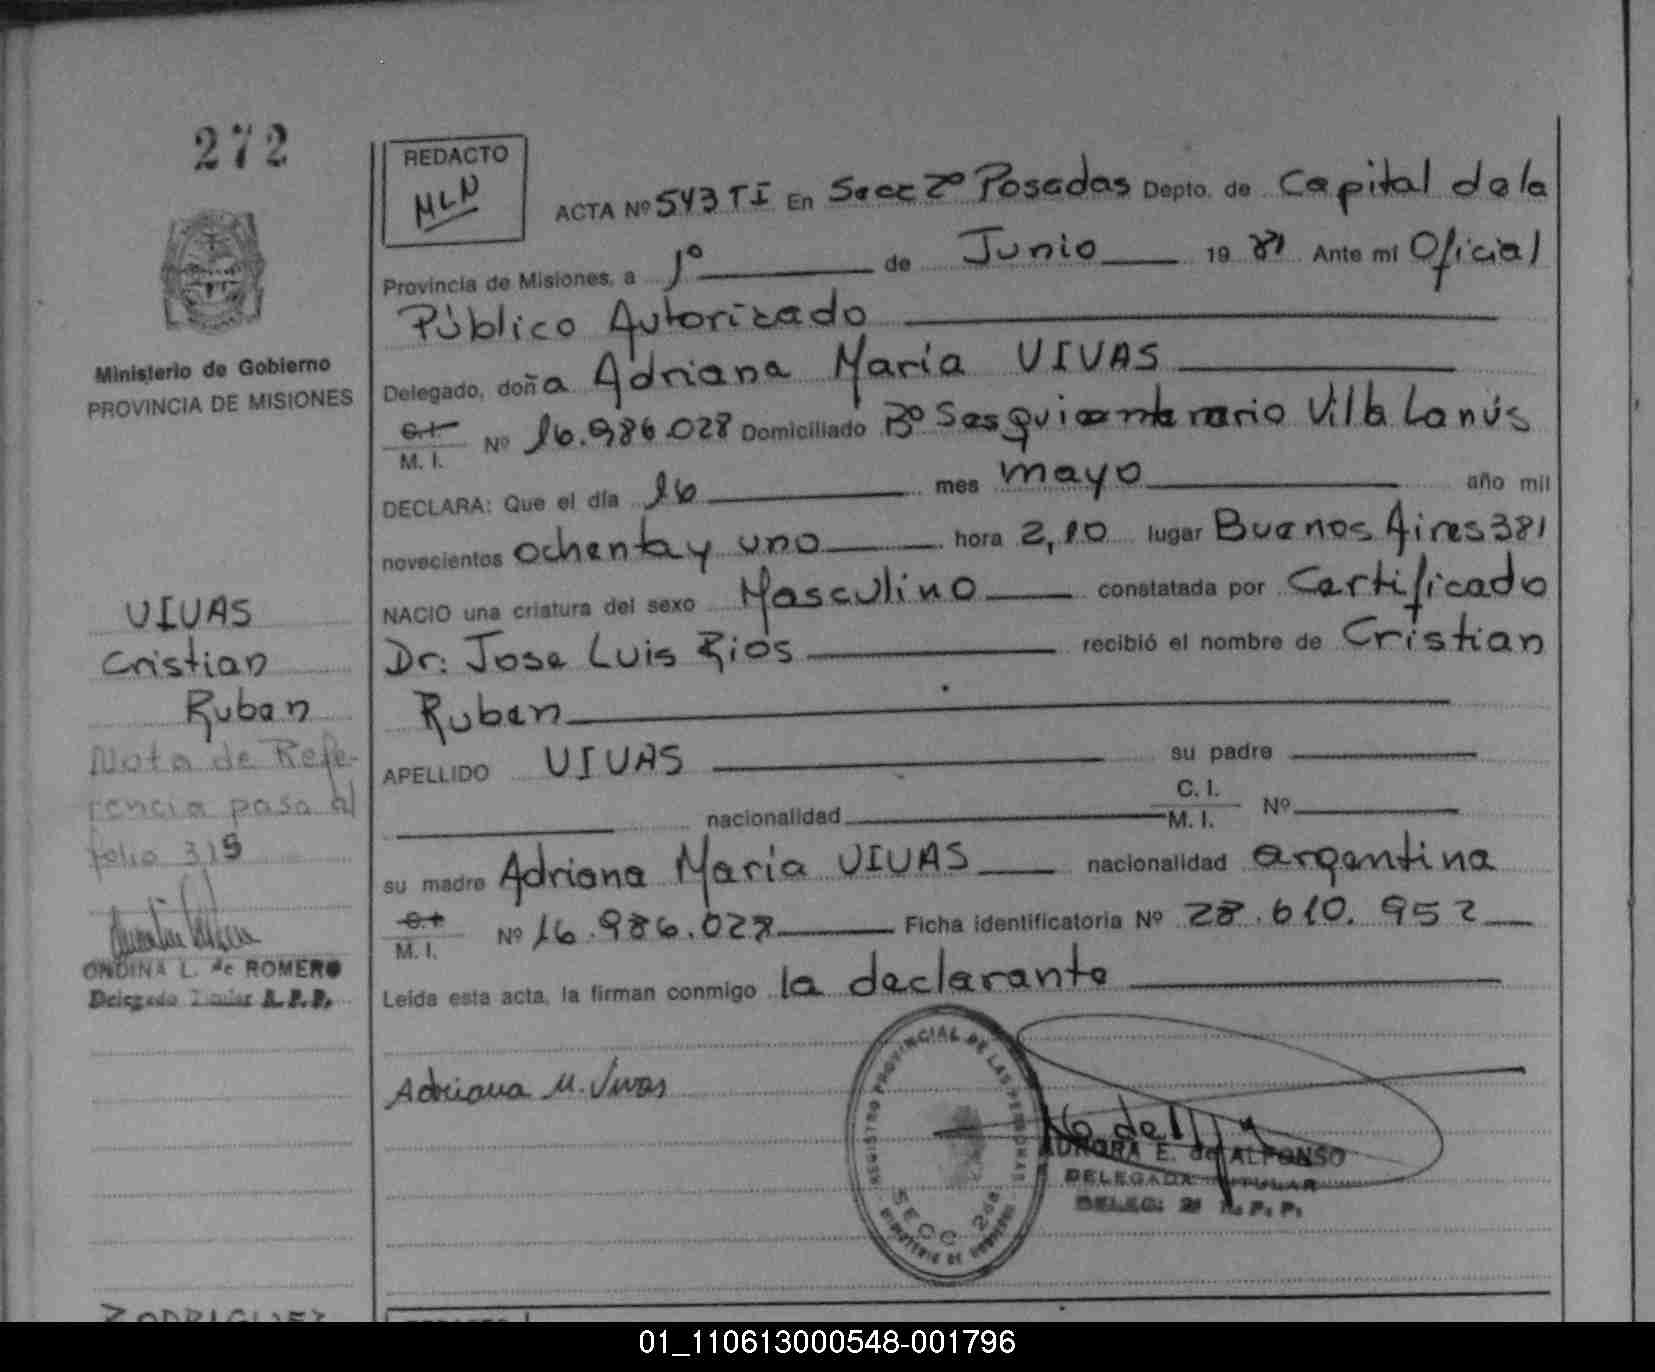 272
REDACTO
MLN
ACTA Nº 543 TI En Secc 2º Posadas Depto. de Capital de la
Provincia de Misiones, a 1º de Junio 19 81 Ante mi Oficial
Público Autorizado
Delegado, doña Adriana María VIVAS
C.I. M. I. Nº 16.986.028 Domiciliado Bº Sesquicentenario Villa Lanús
DECLARA: Que el día 16 mes mayo año mil
novecientos ochenta y uno hora 2,10 lugar Buenos Aires 381
NACIO una criatura del sexo Masculino constatada por Certificado
Dr: Jose Luis Ríos recibió el nombre de Cristian
Ruben
APELLIDO VIVAS su padre
nacionalidad C. I. M. I. Nº
su madre Adriana María VIVAS nacionalidad argentina
C.I. M. I. Nº 16.986.028 Ficha identificatoria Nº 28.610.952
Leída esta acta, la firman conmigo la declarante
Adriana M. Vivas
REGISTRO PROVINCIAL DE LAS PERSONAS
SECC 2da
MINISTERIO DE GOBIERNO
AURORA E. de ALFONSO
DELEGADA TITULAR
DELEG: 2ª R. P. P.
Ministerio de Gobierno
PROVINCIA DE MISIONES
VIVAS
Cristian
Ruben
Nota de Refe-
rencia pasa al
folio 315
ONDINA L. de ROMERO
Delegada Titular R.P.P.
RODRIGUEZ
REDACTO
01_110613000548-001796